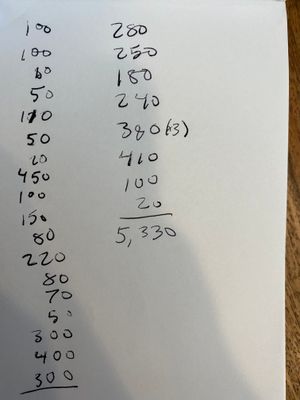 100
100
50
110
50
20
450
100
150
80
220
80
70
50
300
400
300
280
250
180
240
380(x3)
410
100
20
5,330